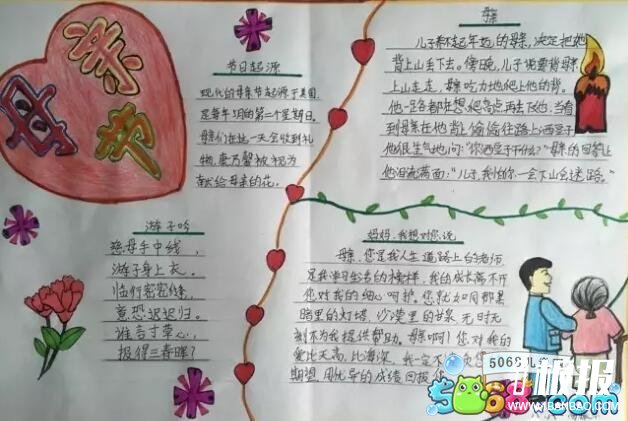 母亲节
节日起源
现代的母亲节起源于美国,
是每年5月的第二个星期日。
母亲们在这一天会收到礼
物,康乃馨被视为
献给母亲的花。
游子吟
慈母手中线,
游子身上衣。
临行密密缝,
意恐迟迟归。
谁言寸草心,
报得三春晖?
母亲
儿子 年迈的母亲,决定把她
背上山丢下去。傍晚,儿子说要背母亲
上山走走,母亲吃力地爬上他的背。
他一路都在想爬高点再丢下她,当看
到母亲在他背上偷偷往路上洒豆子
他很生气地问:"你洒豆子干什么?"母亲的回答让
他泪流满面:"儿子,我怕你一会下山会迷路。"
妈妈,我想对您说
母亲,您是我人生道路上的老师
是我学习生活的榜样,我的成长离不开
您对我的细心呵护。您就如同那黑
暗里的灯塔,沙漠里的甘泉,无时无
刻不为我提供帮助。母亲啊!您对我的
爱比天高,比海深。我一定不
期望,用优异的成绩回报
5068儿
手抄报
5068.com
WWW.1BANBAO.COM